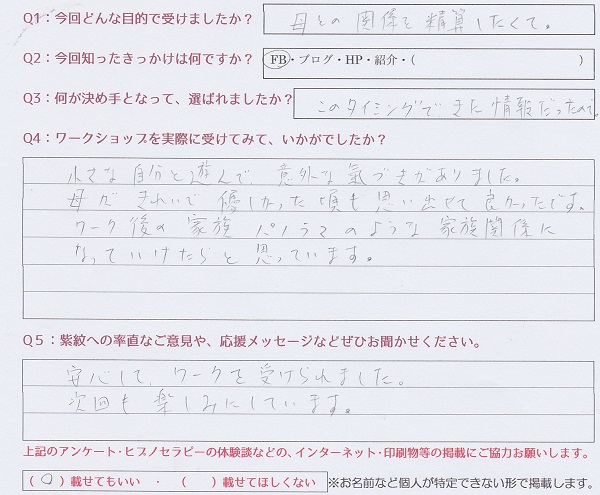 Q1：今回どんな目的で受けましたか？ 母との関係を精算したくて。
Q2：今回知ったきっかけは何ですか？ FB・ブログ・HP・紹介・（ ）
Q3：何が決め手となって、選ばれましたか？ このタイミングできた情報だったので
Q4：ワークショップを実際に受けてみて、いかがでしたか？
小さな自分と遊んで、意外な氣づきがありました。
母がきれいで優しかった頃も思い出せて良かったです。
ワーク後の家族パノラマのような家族関係に
なっていけたらと思っています。
Q5：紫紋への率直なご意見や、応援メッセージなどぜひお聞かせください。
安心して、ワークを受けられました。
次回も楽しみにしています。
上記のアンケート・ヒプノセラピーの体験談などの、インターネット・印刷物等の掲載にご協力お願いします。
（○）載せてもいい ・ （ ）載せてほしくない ※お名前など個人が特定できない形で掲載します。